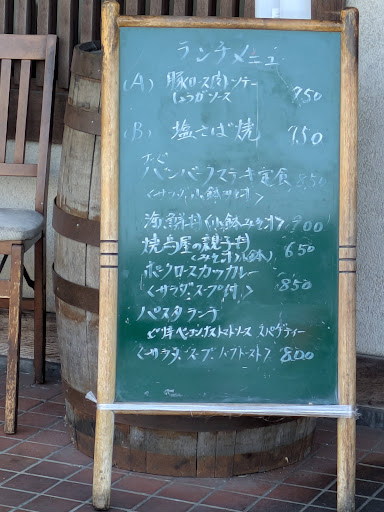 ランチメニュ
(A) 豚ロース肉ソテー
しょうがソース 750
(B) 塩さば焼 750
ハンバーグステーキ定食 850
<サラダ、小鉢、みそ汁>
海鮮丼(小鉢みそ汁)900
焼鳥屋の親子丼 650
<みそ汁、小鉢>
ポークロースカツカレー
<サラダ、スープ付> 850
パスタランチ
ベーコンナストマトソース スパゲティー
<サラダ、スープ、トースト> 800